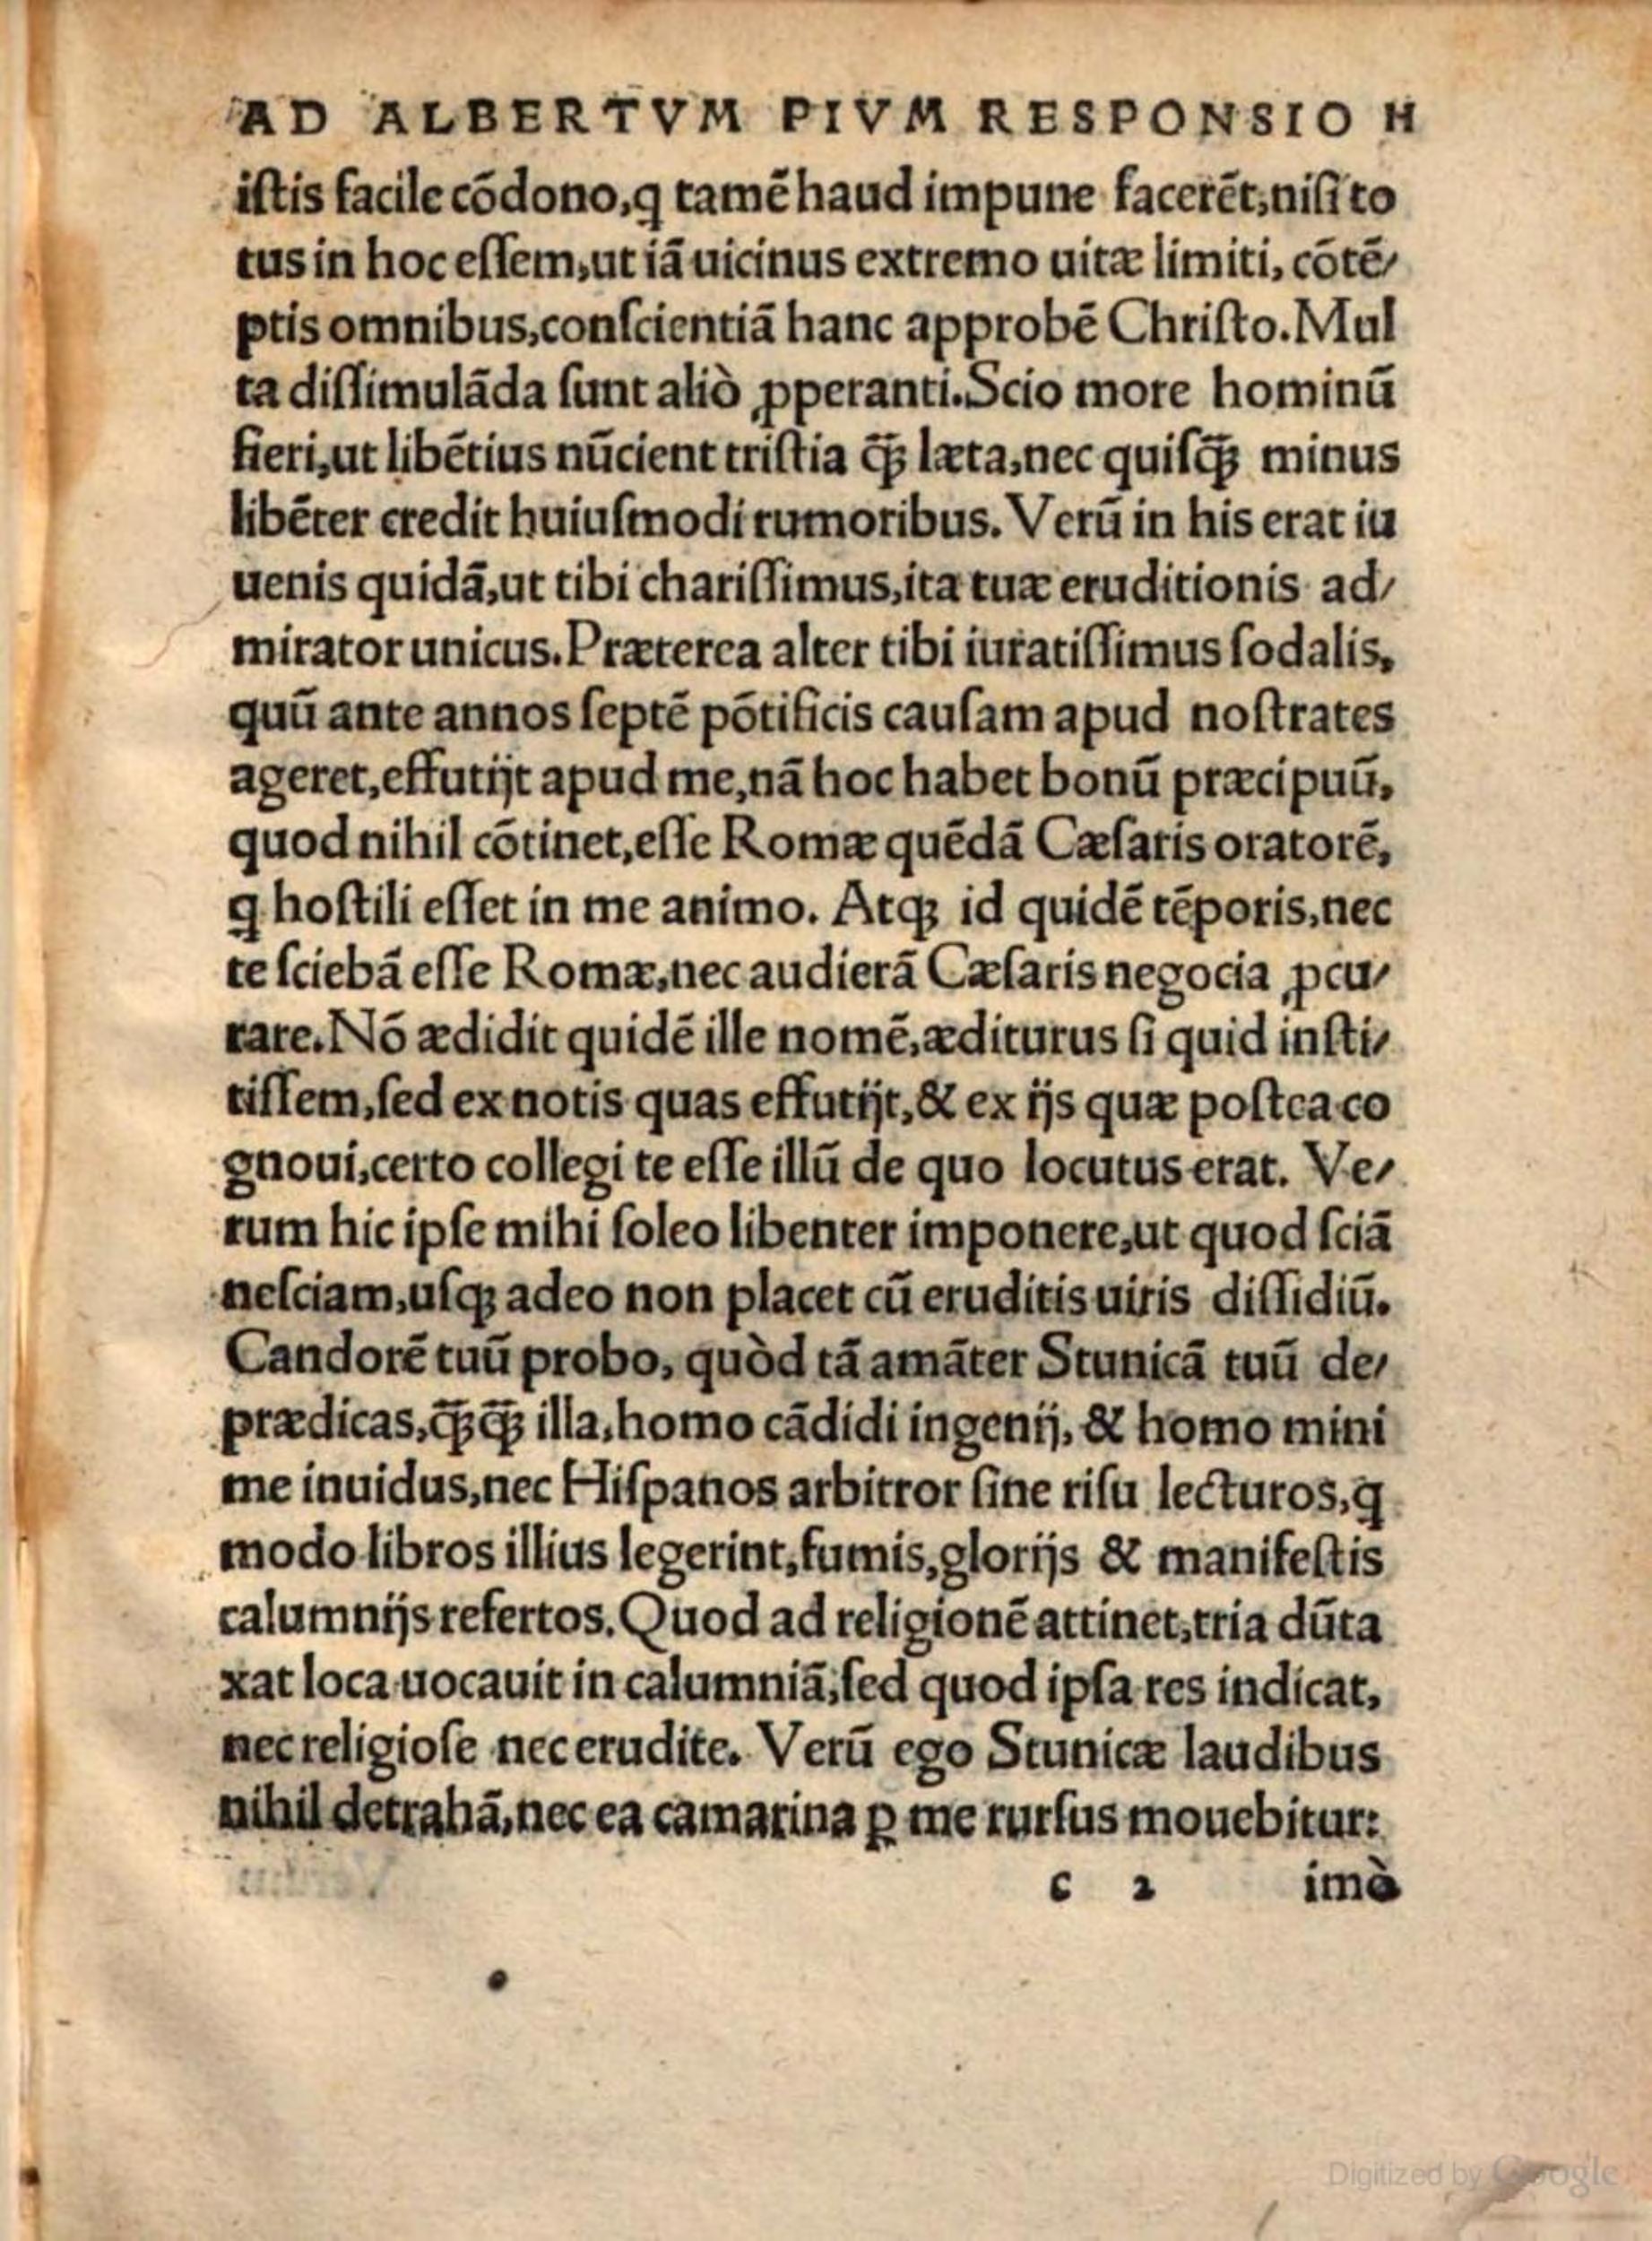 AD ALBERTVM PIVM RESPONSIO H
iſtis facile cõdono,ꝗ tamẽ haud impune facerẽt,niſi to
tus in hoc eſſem,ut iã uicinus extremo uitæ limiti, cõtẽ⸗
ptis omnibus,conſcientiã hanc approbẽ Chriſto.Mul
ta diſſimulãda ſunt aliò ꝓperanti.Scio more hominũ
fieri,ut libẽtius nũcient triſtia q̃ꝫ læta,nec quiſq̃ꝫ minus
libẽter credit huiuſmodi rumoribus. Verũ in his erat iu
uenis quidã,ut tibi chariſſimus,ita tuæ eruditionis ad⸗
mirator unicus.Præterea alter tibi iuratiſſimus ſodalis,
quũ ante annos ſeptẽ põtificis cauſam apud noſtrates
ageret,effutijt apud me,nã hoc habet bonũ præcipuũ,
quod nihil cõtinet,eſſe Romæ quẽdã Cæſaris oratorẽ,
ꝗ hoſtili eſſet in me animo. Atqꝫ id quidẽ tẽporis,nec
te ſciebã eſſe Romæ,nec audierã Cæſaris negocia ꝓcu⸗
rare.Nõ ædidit quidẽ ille nomẽ,æditurus ſi quid inſti⸗
tiſſem,ſed ex notis quas effutijt,& ex ijs quæ poſtea co
gnoui,certo collegi te eſſe illũ de quo locutus erat. Ve⸗
rum hic ipſe mihi ſoleo libenter imponere,ut quod ſciã
neſciam,uſqꝫ adeo non placet cũ eruditis uiris diſſidiũ.
Candorẽ tuũ probo, quòd tã amãter Stunicã tuũ de⸗
prædicas,q̃ꝫq̃ꝫ illa,homo cãdidi ingenij, & homo mini
me inuidus,nec Hiſpanos arbitror ſine riſu lecturos,ꝗ
modo libros illius legerint,fumis,glorijs & manifeſtis
calumnijs refertos.Quod ad religionẽ attinet,tria dũta
xat loca uocauit in calumniã,ſed quod ipſa res indicat,
nec religioſe nec erudite. Verũ ego Stunicæ laudibus
nihil detrahã,nec ea camarina ꝑ me rurſus mouebitur:
c 2 imò
Digitized by Google